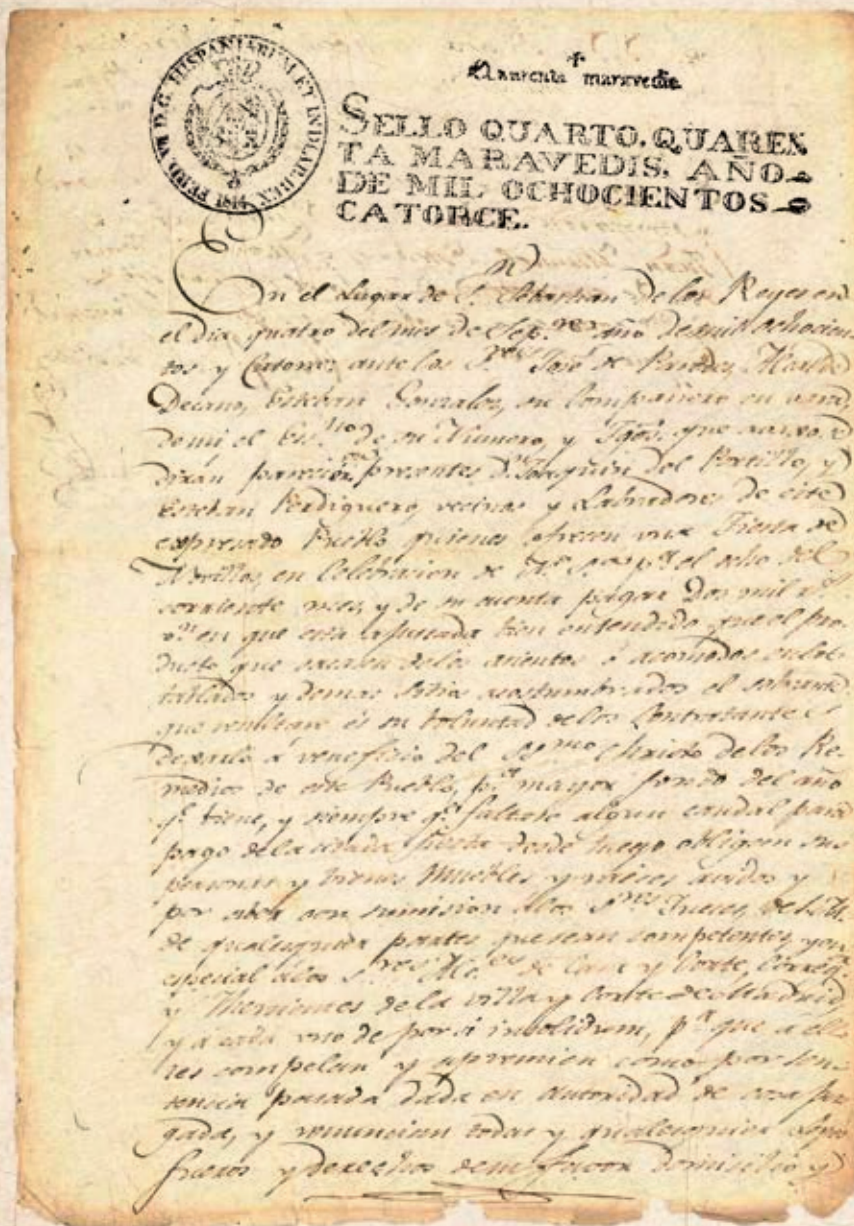 FERD. VII D.G. HISPANIARUM ET INDIAR. REX 1814
Quarenta maravedis
SELLO QUARTO. QUAREN
TA MARAVEDIS. AÑO
DE MIL OCHOCIENTOS
CATORCE.
En el Lugar de S. Sebastian de los Reyes en
el dia quatro del mes de Sep.re año de mil ochocien
tos y Catorce ante los S.res José de Alcalde
Decano, Esteban Gonzalez, su Compañero en vara,
de mi el Es.no de su Numero, y Tgos. que avaxo se
dirán parecieron presentes D. Joaquin del Portillo, y
Esteban Perdiguero, vecinos y Labradores de este
expresado Pueblo quienes ofrecen una Fiesta de
Novillos, en Celebracion de N.a S.a p.a el ocho del
corriente mes, y de su cuenta pagar Dos mil r.s
v.n en que está ajustada bien entendido que el pro
ducto que sacasen de los asientos ó acomodos en los
tablados y demas sitios acostumbrados el sobrante
que resultare és su voluntad de los Contratantes
dexarlo á veneficio del SS.mo Christo de los Re
medios de este Pueblo, p.a mayor fondo del año
q.e tiene, y siempre q.e faltase algun caudal para
pago de la citada fiesta desde luego obligan sus
personas y bienes Muebles y raices avidos y
por aber con sumision a los S.res Jueces, de S.M.
de qualesquiera partes que sean competentes, y en
especial a los S.res Alc.es de Casa y Corte, Correg.r
y Thenientes de la villa y Corte de Madrid,
y á cada uno de por si insolidum, p.a que a ello
les compelan y apremien como por sen
tencia pasada dada en autoridad de cosa juz
gada, y renuncian todas y qualesquiera
fueros y derechos de su favor domicilio y